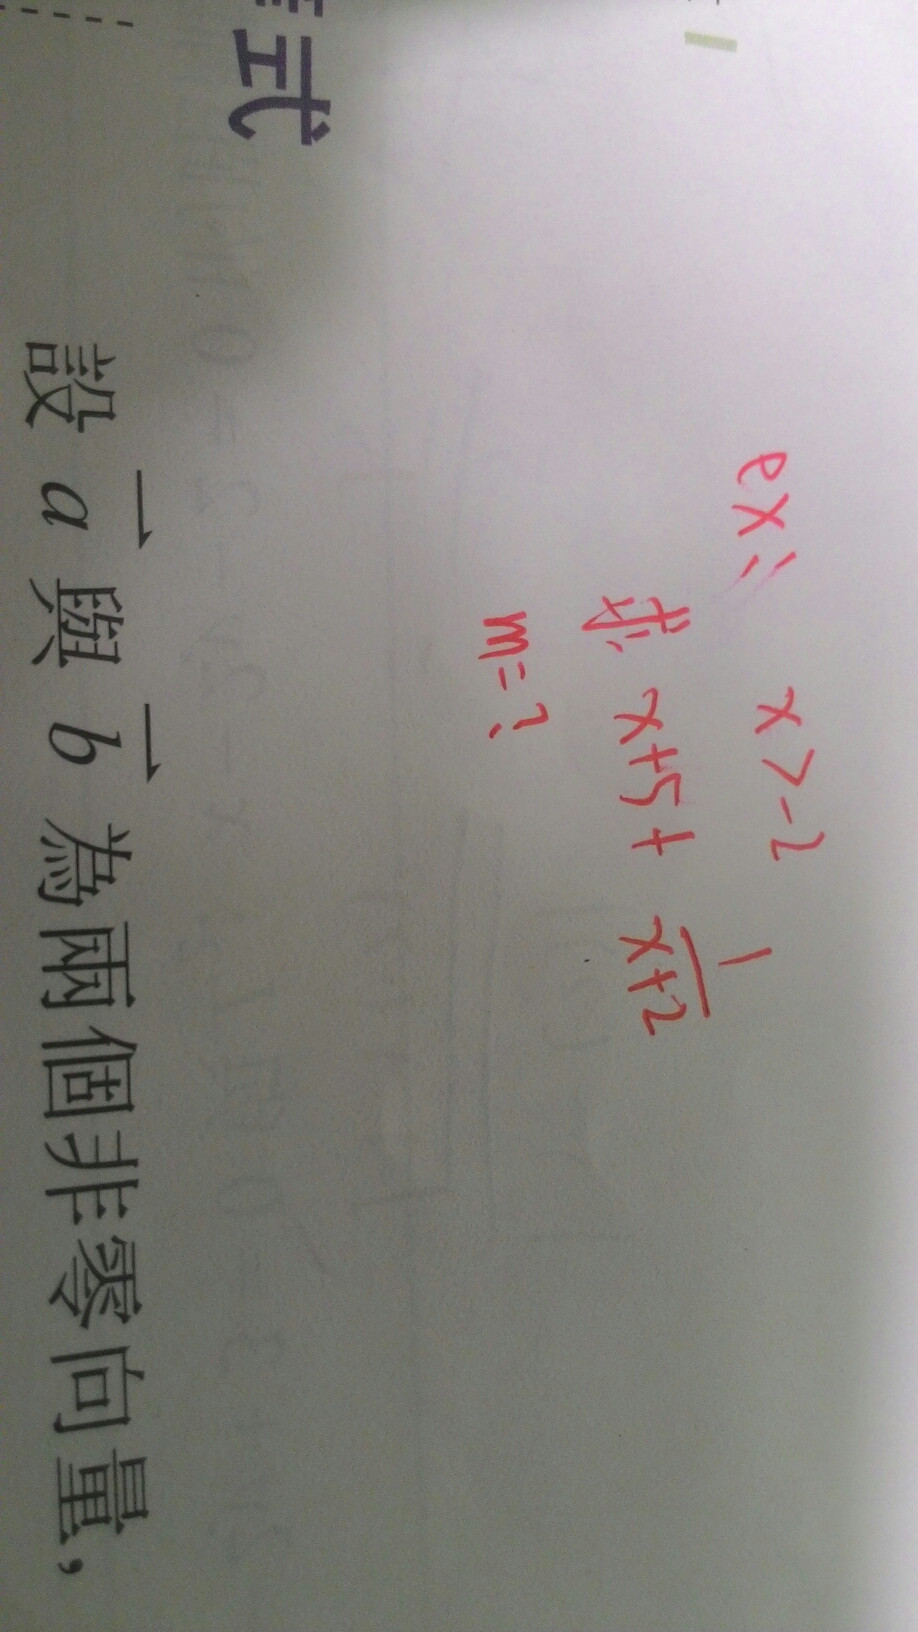 式
ex: x>-2
求 x+5+ 1/(x+2)
m=?
設 a 與 b 為兩個非零向量,